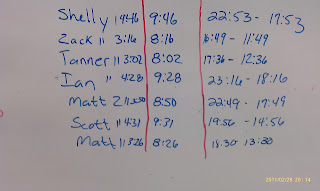 Shelly 14:46 9:46 22:53 - 17:53
Zack 11 3:16 8:16 16:49 - 11:49
Tanner 11 3:02 8:02 17:36 - 12:36
Ian 11 4:28 9:28 23:16 - 18:16
Matt Z 11 3:50 8:50 22:49 - 17:49
Scott 11 4:31 9:31 19:56 - 14:56
Matt 11 3:26 8:26 18:30 13:30
2011/02/28 20:14